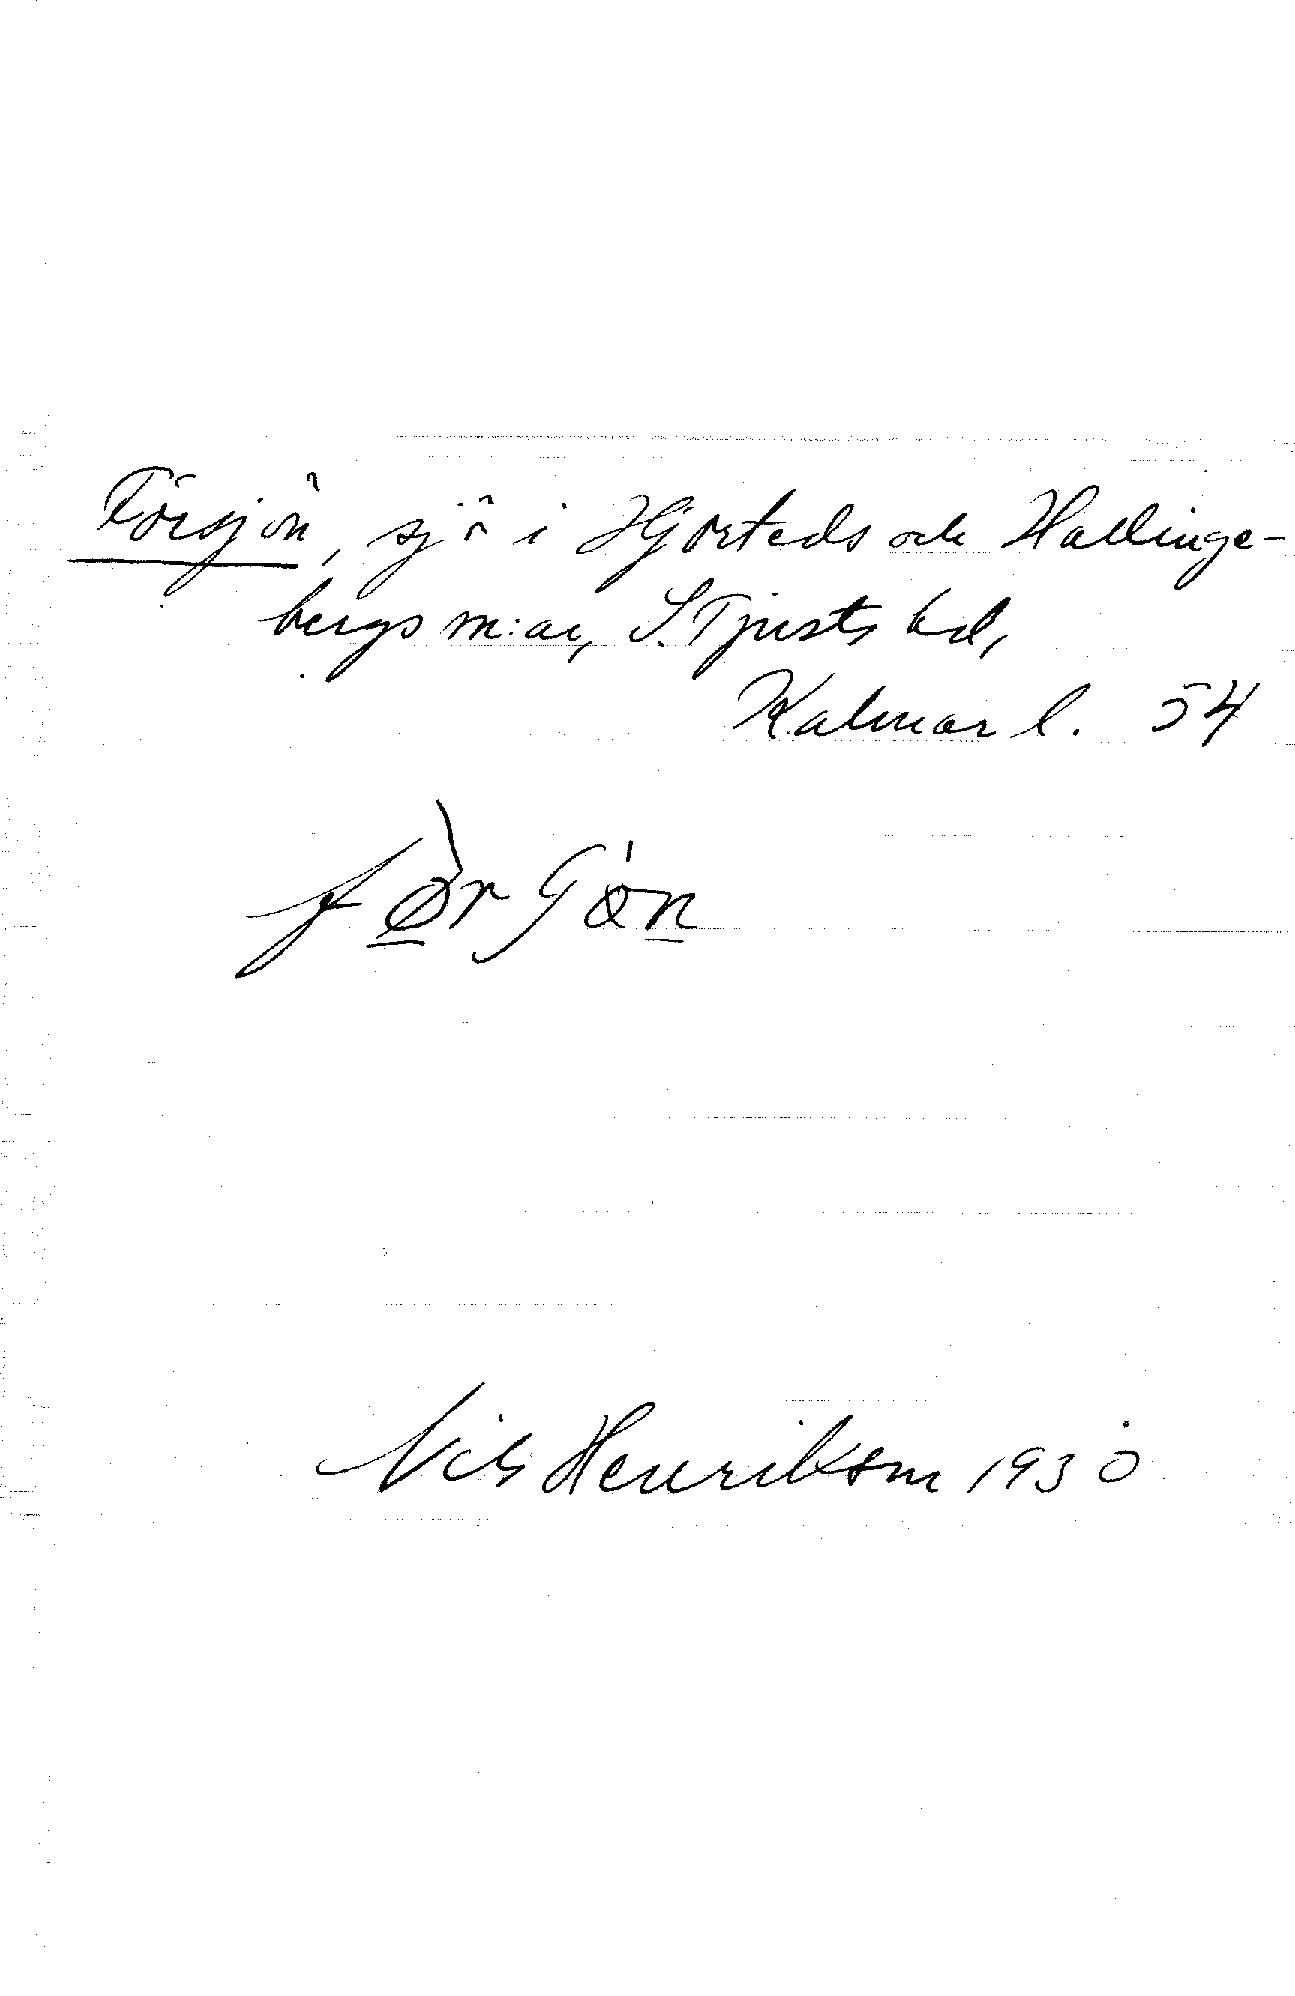 Försjön, sjö i Hjorteds och Hallinge-
bergs sn:ar, S. Tjusts hd,
Kalmar l. 54
Nils Henrikson 1930